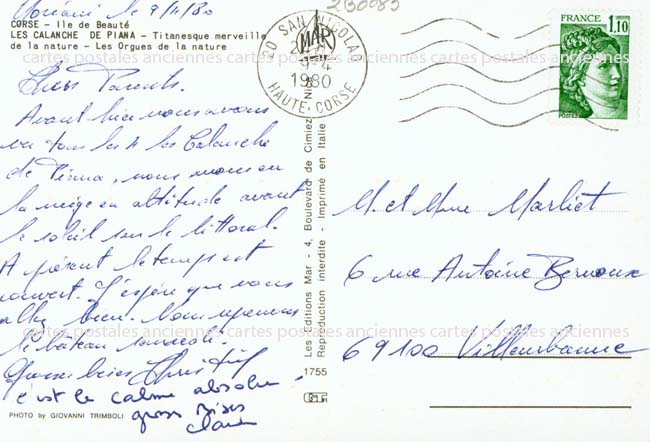 Moriani le 9/4/80
CORSE - Ile de Beauté
LES CALANCHE DE PIANA - Titanesque merveille
de la nature - Les Orgues de la nature
Chers Parents.
Avant hier nous avons
vu tous les 4 les Calanche
de Piana, nous avons eu
la neige en altitude avant
le soleil sur le littoral.
A présent le temps est
couvert. J'espère que vous
allez bien. Nous reprenons
le bateau samedi.
Grosses bises
c'est le calme absolu
grosses bises
Claire
PHOTO by GIOVANNI TRIMBOLI
230085
20 SAN NICOLAO
9-4
1980
HAUTE-CORSE
MAR
Les Editions Mar - 4, Boulevard de Cimiez
Reproduction interdite - Imprimé en Italie
1755
FRANCE
1,10
POSTES
M. et Mme Marliet
6 rue Antoine Bernoux
69100 Villeurbanne
cartes postales anciennes cartes postales anciennes cartes postales anciennes
cartes postales anciennes cartes postales anciennes cartes postales anciennes